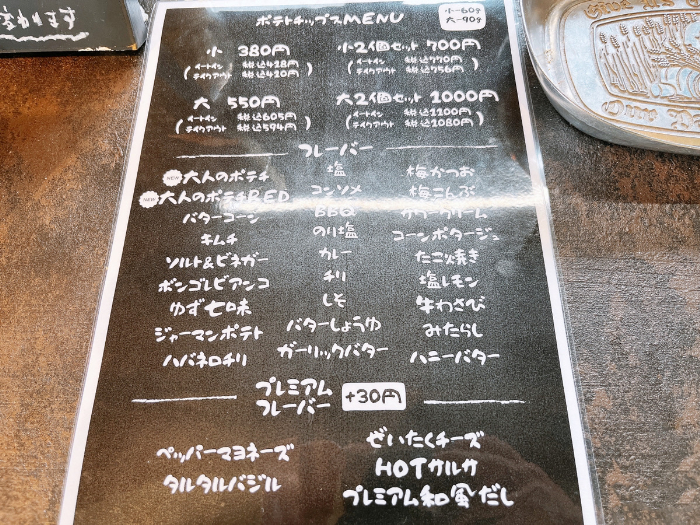 変わります
ポテトチップスMENU
小-60g
大-90g
小 380円
(イートイン 税込418円
テイクアウト 税込410円)
小2個セット 700円
(イートイン 税込770円
テイクアウト 税込756円)
大 550円
(イートイン 税込605円
テイクアウト 税込594円)
大2個セット 1000円
(イートイン 税込1100円
テイクアウト 税込1080円)
フレーバー
NEW 大人のポテチ
NEW 大人のポテチRED
バターコーン
キムチ
ソルト&ビネガー
ボンゴレビアンコ
ゆず七味
ジャーマンポテト
ハバネロチリ
塩
コンソメ
BBQ
のり塩
カレー
チリ
しそ
バターしょうゆ
ガーリックバター
梅かつお
梅こんぶ
サワークリーム
コーンポタージュ
たこ焼き
塩レモン
牛わさび
みたらし
ハニーバター
プレミアム
フレーバー
+30円
ペッパーマヨネーズ
タルタルバジル
ぜいたくチーズ
HOTサルサ
プレミアム和風だし